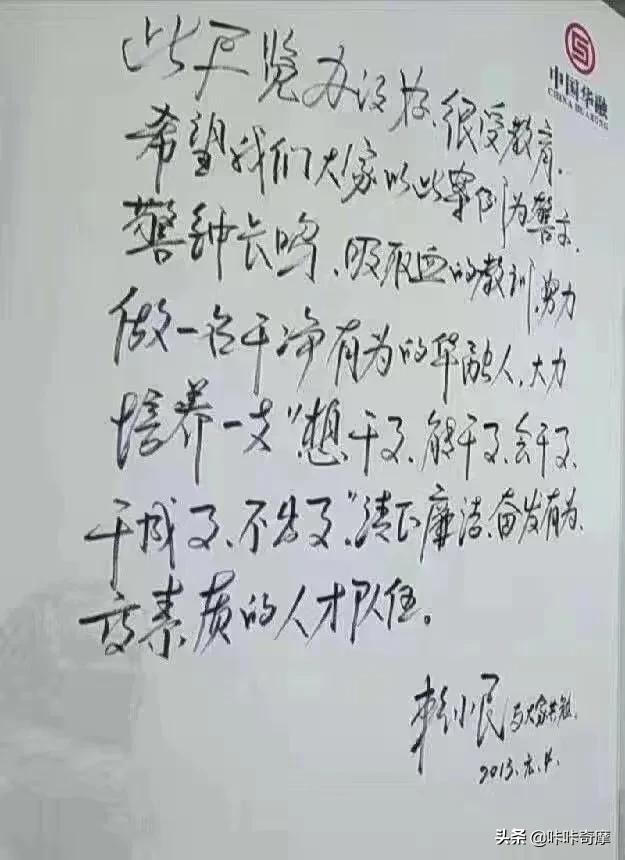 中国华融
CHINA HUARONG
此展览办设好、很受教育、
希望我们大家以此案例为警示、
警钟长鸣、吸取血的教训、努力
做一名干净有为的华融人、大力
培养一支"想干事、能干事、会干事、
干成事、不出事"、清正廉洁、奋发有为、
高素质的人才队伍。
赖小民 与大家共勉、
2013.
头条 @咔咔奇摩